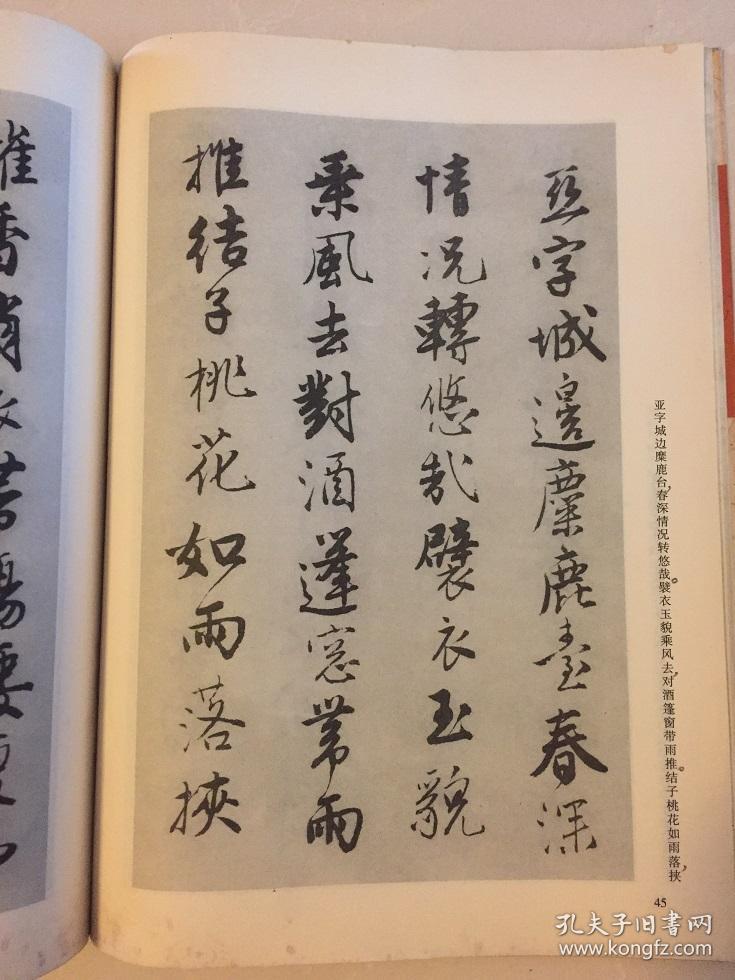 亚字城邊麋鹿臺春深
情况轉悠哉襞衣玉貌
乗風去對酒蓬窓带雨
推结子桃花如雨落挾
亚字城边麋鹿台，春深情况转悠哉。襞衣玉貌乘风去，对酒篷窗带雨推。结子桃花如雨落，挟
45
孔夫子旧书网
www.kongfz.com